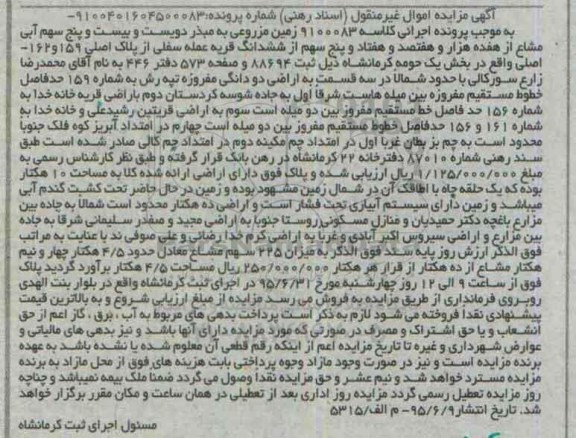 آگهی مزایده اموال غیرمنقول (اسناد رهنی) شماره پرونده:۹۱۰۰۴۰۰۱۶۰۴۵۰۰۰۸۳-
به موجب پرونده اجرائی کلاسه ۹۱۰۰۰۸۳ زمین مزروعی به مبذر دویست و بیست و پنج سهم آبی
مشاع از هفده هزار و هفتصد و هفتاد و پنج سهم از ششدانگ قریه عمله سفلی از پلاک اصلی ۱۵۹و۱۶۲-
اصلی واقع در بخش یک حومه کرمانشاه ذیل ثبت ۸۸۶۹۴ و صفحه ۵۷۳ دفتر ۴۴۶ به نام آقای محمدرضا
زارع سورکالی با حدود شمالا در سه قسمت به اراضی دو دانگی مفروزه تپه رش به شماره ۱۵۹ حدفاصل
خطوط مستقیم مفروزه بین میله هاست شرقا اول به جاده شوسه کردستان دوم باراضی قریه خانه خدا به
شماره ۱۵۶ حد فاصل خط مستقیم مفروز بین دو میله است سوم به اراضی قریتین رشیدعلی و خانه خدا به
شماره ۱۶۱ و ۱۵۶ حدفاصل خطوط مستقیم مفروز بین دو میله است چهارم در امتداد آبریز کوه فلک جنوبا
محدود است به چم بز بطان غربا اول در امتداد چم مکینه دوم در امتداد چم کالی صادر شده است طبق
سند رهنی شماره ۸۷۰۱۰ دفترخانه ۲۲ کرمانشاه در رهن بانک قرار گرفته و طبق نظر کارشناس رسمی به
مبلغ ۱/۱۲۵/۰۰۰/۰۰۰ ریال ارزیابی شده و پلاک فوق دارای اراضی ارائه شده کلا به مساحت ۱۰ هکتار
بوده که یک حلقه چاه با اطاقک آن در شمال زمین مشهود بوده و زمین در حال حاضر تحت کشت گندم آبی
میباشد و زمین دارای سیستم آبیاری تحت فشار است و اراضی ده هکتار محدود است شمالا به جاده بین
مزارع باغچه دکتر حمیدیان و منازل مسکونی روستا جنوبا به اراضی مجید و صفدر سلیمانی شرقا به جاده
بین مزارع و اراضی سیروس اکبر آبادی و غربا به اراضی کرم خدا رضائی و علی صوفی ند با عنایت به مراتب
فوق الذکر ارزش روز پایه سند فوق الذکر به میزان ۲۲۵ سهم مشاع معادل حدود ۴/۵ هکتار چهار و نیم
هکتار مشاع از ده هکتار از قرار هر هکتار ۲۵۰/۰۰۰/۰۰۰ ریال مساحت ۴/۵ هکتار برآورد گردید پلاک
فوق از ساعت ۹ الی ۱۲ روز چهارشنبه مورخ ۹۵/۶/۳۱ در اجرای ثبت کرمانشاه واقع در بلوار بنت الهدی
روبروی فرمانداری از طریق مزایده به فروش می رسد مزایده از مبلغ ارزیابی شروع و به بالاترین قیمت
پیشنهادی نقدا فروخته می شود لازم به ذکر است پرداخت بدهی های مربوط به آب ، برق ، گاز اعم از حق
انشعاب و یا حق اشتراک و مصرف در صورتی که مورد مزایده دارای آنها باشد و نیز بدهی های مالیاتی و
عوارض شهرداری و غیره تا تاریخ مزایده اعم از اینکه رقم قطعی آن معلوم شده یا نشده باشد به عهده
برنده مزایده است و نیز در صورت وجود مازاد وجوه پرداختی بابت هزینه های فوق از محل مازاد به برنده
مزایده مسترد خواهد شد و نیم عشر و حق مزایده نقدا وصول می گردد ضمنا ملک بیمه نمیباشد و چناچه
روز مزایده تعطیل رسمی گردد مزایده روز اداری بعد از تعطیلی در همان ساعت و مکان مقرر برگزار خواهد
شد. تاریخ انتشار۹۵/۶/۹- م الف/۵۳۱۵
مسئول اجرای ثبت کرمانشاه